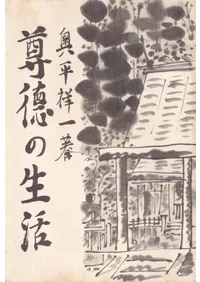 奥平祥一著
尊德の生活